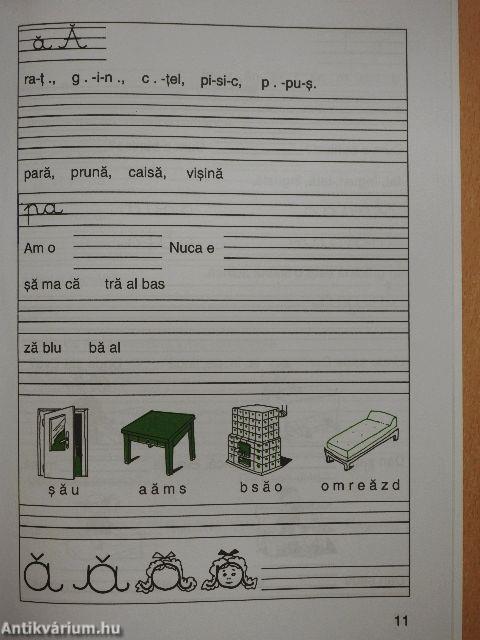 ă Ă
ra-ț ., g . -i-n ., c . -țel, pi-si-c, p . -pu-ș.
pară, prună, caisă, vișină
pa
Am o Nuca e
șă ma că tră al bas
ză blu bă al
ș ă u a ă m s b s ă o o m r e ă z d
ă ă ă ă
11
Antikvárium.hu